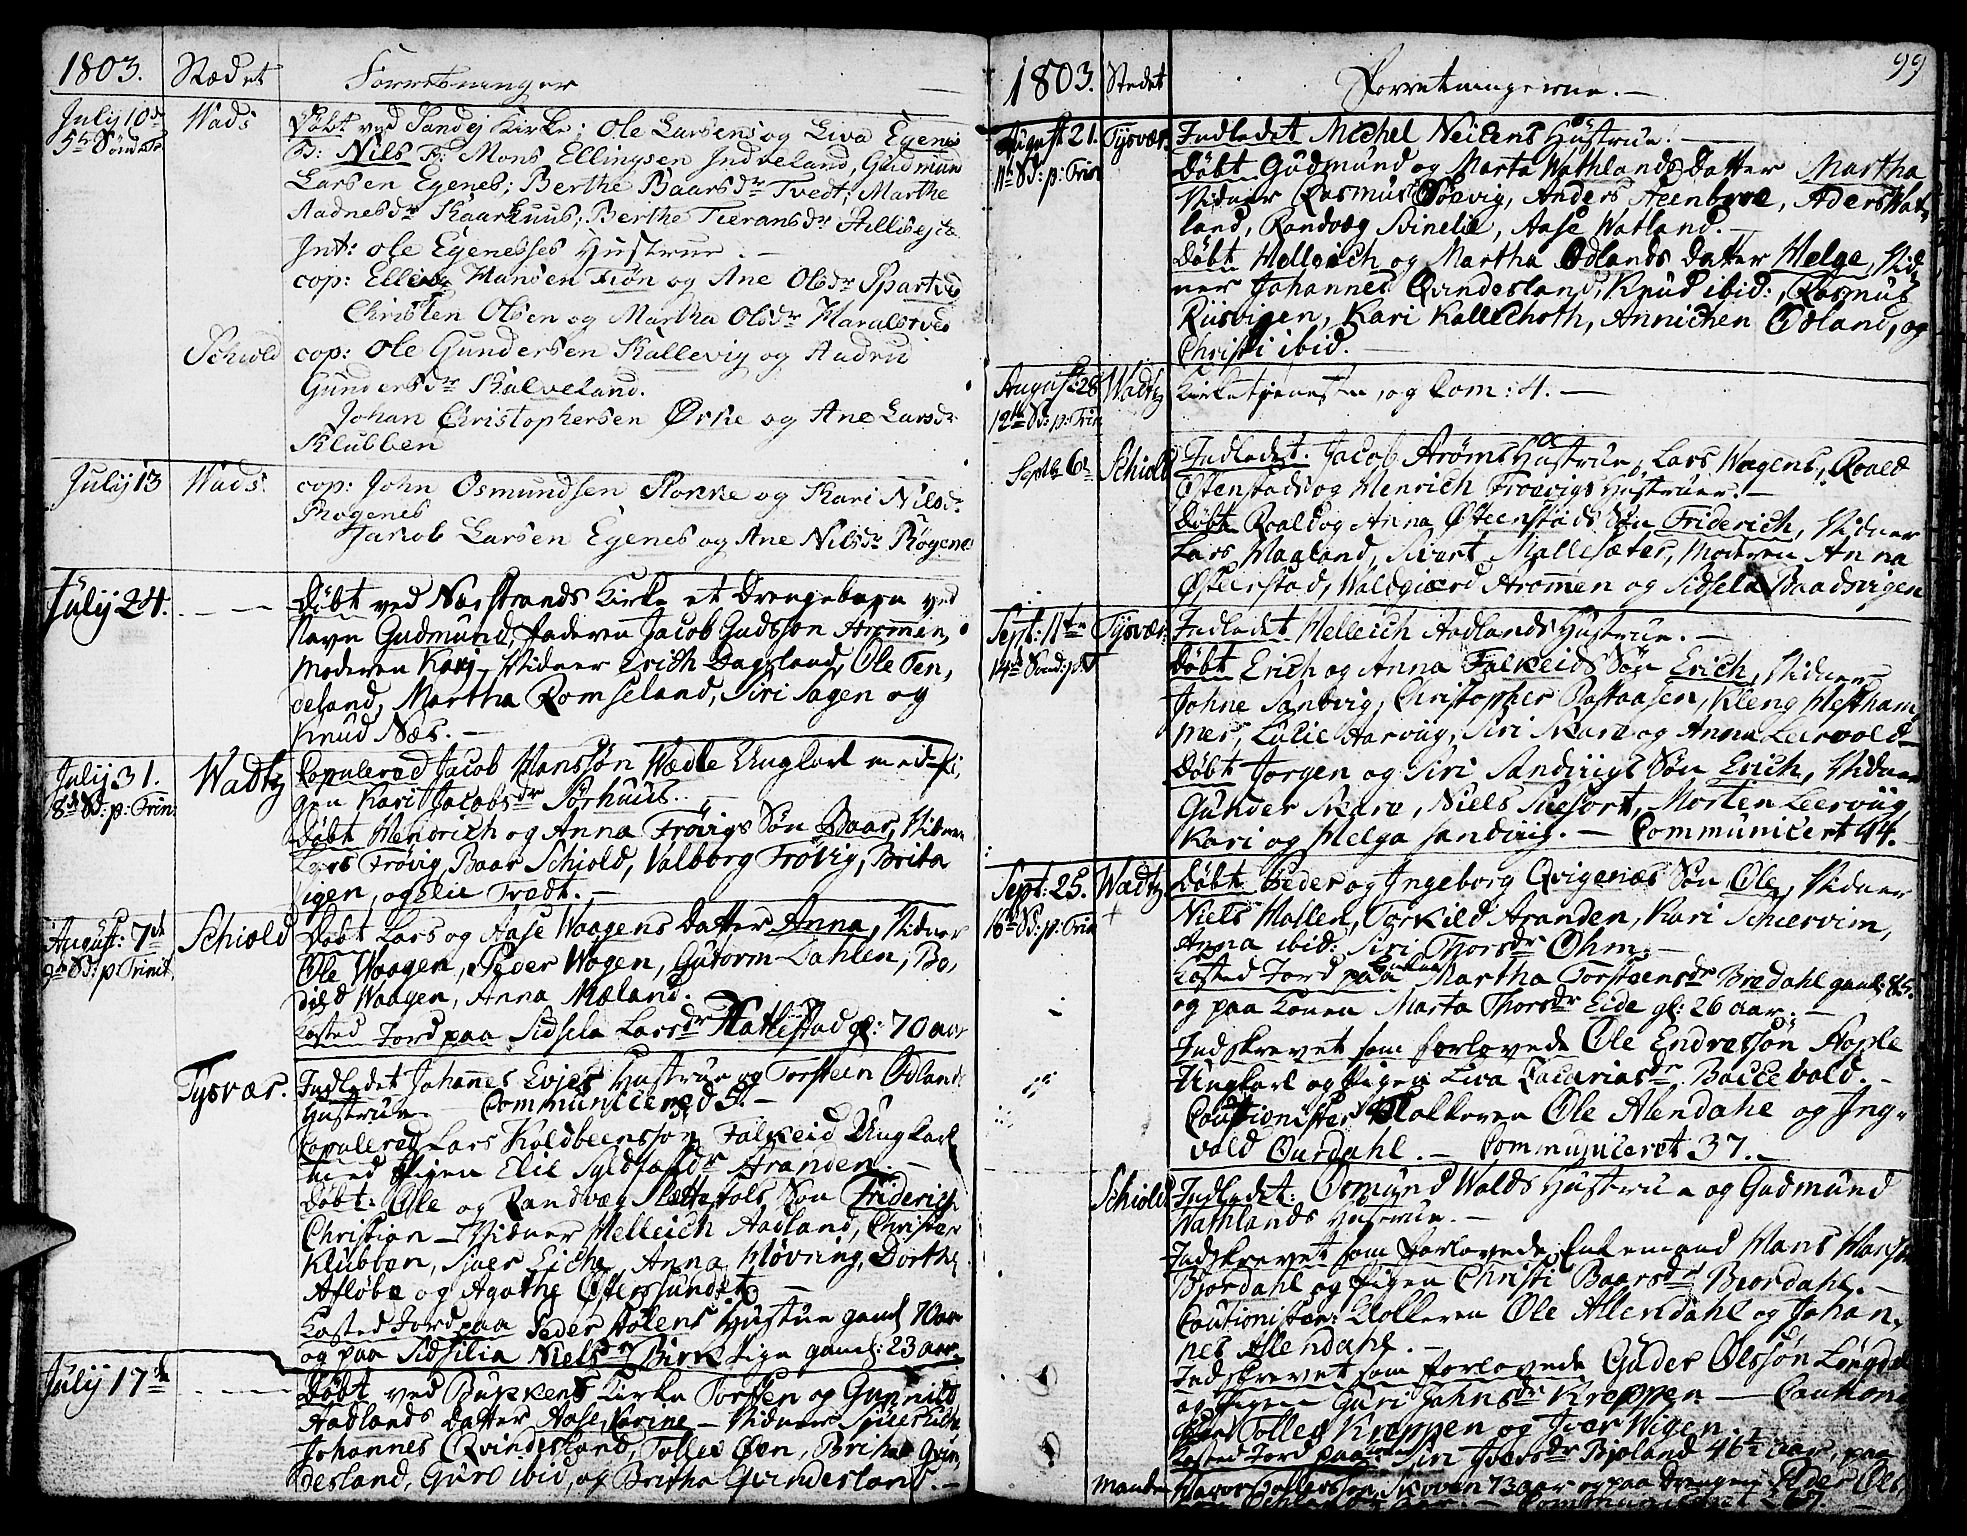 1803. Stædet Forretninger
July 10de Wads Døbt ved Sandej Kirke; Ole Larsens og Liva Egenes
5te Sønd.
B: Nils F: Mons Ellingsen Indveland, Gudmun
Larsen Egenes; Berthe Baarsdr Tvedt; Marthe
Aadnesdr Kaarhuus; Berthe
Int: Ole Egenesses Hustrue. —
cop: Elling Hansen Fiøn og Ane Olsdr
Christen Olsen og Martha Olsdr
Schiold cop: Ole Gundersen Kallevig og
Gundersdr Kalveland.
Johan Christophersen Ørke og Ane Larsdr
Klubben
July 13 Wads. cop: John Osmundsen og Kari Nilsdr
Røgenes
Jakob Larsen Egenes og Ane Nilsdr Røgenes
Julij 24. — Døbt ved Nærstrands Kirke et Drengebarn ved
Navn Gudmund, faderen Jacob Arommen,
Moderen Karj — Vidner Erich Dagsland, Ole Ten,
deland, Martha Romseland, Siri Sagen og
Knud Næs. —
Julij 31. Wadtz Copulered Jacob Hanssøn Wædle Ungkarl med Pi,
8de Sd: p: Trin:
gen Kari Jacobsdr Sørhuus. —
Døbt Hendrich og Anna Frøvigs Søn Baar, Vidner
Lars Frøvig, Baar Schiold, Valborg Frøvig, Brita
Vigen, og Elie Tvedt. —
August: 7de Schiold Døbt Lars og Aase Waagens Datter Anna, Vidner
9de Sd: p Trinit,
Ole Waagen, Peder Wagen, Gutorm Dahlen, Bo,
dild Waagen, Anna Mæland.
Kasted Jord paa Sidsela Larsdr gl: 70 aar
Tysvær. Indledet Johannes Evjes Hustrue og Torsteen Ødlands
Hustrue. — Communicered 5. —
Copulered Lars Koldbeenssøn Falkeid Ungkarl
med Pigen Elie Aranden. —
Døbt: Ole og Randvæg Søn Friderich
Christian — Vidner Helleich Aadland, Christen
Klubben, Siver Eiche, Anna Høvring, Dorthe
Afløbe og Agathe Østersundet —
Kasted Jord paa Peder Hustrue gaml 70 aar
og paa Sidsilia Nielsdr Birk Pige gaml: 23 aar.
Julij 17de — Døbt ved Buckens Kirke Torsten og Gunnild
Aadlands Datter Aase Karine — Vidner
Johannes Qvindesland, Tolles Øen, Britha Qvin,
desland, Guro ibid, og Britha Qvindesland. —
99
1803. Stedet Forretningerne. —
August 21. Tysvær. Indledet Michel Neilens Hustrue. —
11te Sd: p: Trin
Døbt Gudmund og Marta Wathlands Datter Martha
Vidner Rasmus Døevig, Anders Steenbroe, Aders Wat,
land, Randvæg Svinelie, Aase Watland. —
Døbt Helleich og Martha Ødlands Datter Helge, Vid,
ner Johannes Qvindesland, Knud ibid:, Rasmus
Riisvigen, Kari Kallekhoth, Annichen Ødland, og
Christi ibid. —
August: 28 Wadtz Kirketjeneste, og Com: 4. —
12te Sd: p: Trin
Septbr 6te Schiold Indledet. Jacob Arøms Hustrue, Lars Wagens, Roald
Østenstads og Henrich Froevigs Hustruer. —
Døbt Roald og Anna Østeenstads Søn Friderich, Vidner
Lars Haaland, Sivert Mallesæter, Moderen Anna
Østeenstad, Waldgierd Arommen og Sidsela Baadsvigen
Sept: 11te Tysvær. Indledet Helleich Aadlands Hustrue. —
14de Sond: p: T
Døbt Erich og Anna Falkeids Søn Erich, Vidner
Johne Sandvig, Christopher Rastaasen, Kleng Hestham,
mer, Lulie Aarviig, Siri Skare og Anna Leervold —
Døbt Jorgen og Siri Sandviigs Søn Erich, Vidner
Gunder Skare, Niels Morten Leerviig,
Kari og Helga Sandviig. — Communicert 44.
Sept: 25. Wadtz Døbt Peder og Ingeborg Qvigenæs Søn Ole, Vidner
16de Sd: p: Trin
Niels Mollen, Torkild Aranden, Kari Schiervim,
Anna ibid: Siri Thorsdr Ohm. —
Kasted Jord paa Enken Martha Torsteensdr Bredahl gaml: 85.
og paa Konen Marta Thorsdr Eide gl: 26 aar. —
Indskrevet som forlovede Ole Endressøn Hople
Ungkarl og Pigen Liva Zacariasdr Baccevold. —
Cautionister Klokkeren Ole Alendahl og Ing-
vald Ourdahl. — Communiceret 37. —
Schiold Indledet: Osmund Walds Hustrue og Gudmund
Wathlands Hustrue. —
Indskrevet som forlovede Enkemand Hans Hanssøn
Bjordahl og Pigen Christi Baarsdr Bjordahl. —
Cautionister: Klokkeren Ole Allendahl og Johan,
nes Alendahl. —
Indskrevet som forlovede Guder Olssøn Løngdal
og Pigen Guri Jahnsdr Kreppen. — Cautioni
ster Tolles Kreppen og Iver Vigen. —
Kasted Jord paa Konen Siri Iversdr Bjoland 46½ aar, paa
Manden Skoven 73 aar — og paa Drengen Peder Ols,
Communiceret 267.